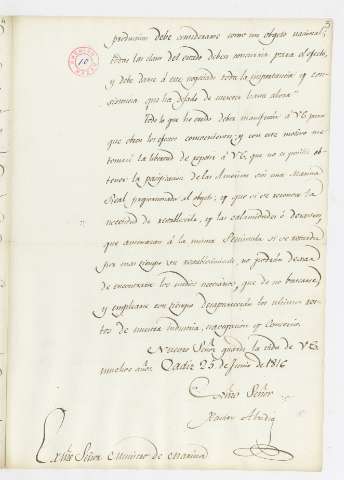 produccion debe considerarse como un objeto nacional;
todas las clases del estado deben concurrir para el efecto,
y debe darse á este negociado toda la importancia y con-
sistencia que ha dejado de merecer hasta ahora.
Todo lo que he creido deber manifestar á V.E. para
que obre los efectos convenientes; y con este motivo me
tomaré la libertad de repetir á V.E. que no es posible ob-
tener la pacificacion de las Americas sin una Marina
Real proporcionada al objeto; y que si se reconoce la
necesidad de restablecerla, y las calamidades ó desastres
que amenazan á la misma Peninsula si se retarda
por mas tiempo su restablecimiento, no podrán dexar
de encontrarse los medios necesarios, que de no buscarse
y emplearse con tiempo desaparecerán los ultimos res-
tos de nuestra industria, navegacion y Comercio.
Nuestro Señor guarde la vida de V.E.
muchos años. Cadiz 25 de Junio de 1816
Exmo Señor
Exmo Señor Ministro de Marina